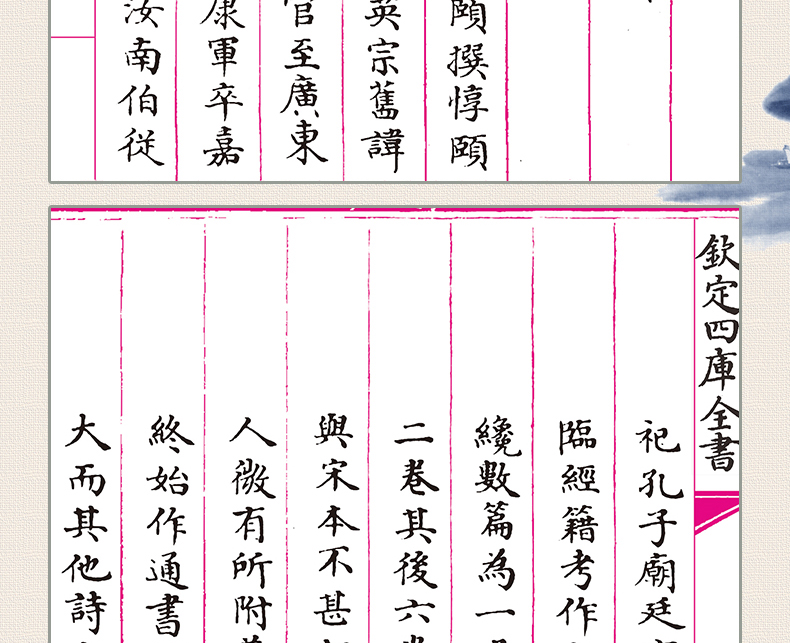 頤撰惇頤
英宗舊諱
官至廣東
康軍卒嘉
汝南伯從
欽定四庫全書
祀孔子廟廷
臨經籍考作
纔數篇為一
二卷其後六
與宋本不甚
人微有所附
終始作通書
大而其他詩